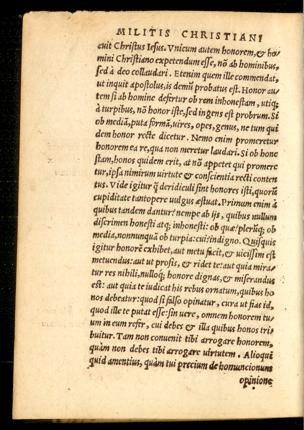 MILITIS CHRISTIANI
cuit Christus Iesus. Vnicum autem honorem, & ho/
mini Christiano expetendum esse, nõ ab hominibus,
sed à deo collaudari. Etenim quem ille commendat,
ut inquit apostolus, is demũ probatus est. Honor au/
tem si ab homine defertur ob rem inhonestam, utiq;
à turpibus, nõ honor iste, sed ingens est probrum. Si
ob mediã, puta formã, uires, opes, genus, ne tum qui
dem honor recte dicetur. Nemo enim promeretur
honorem ea re, qua non meretur laudari. Si ob hone
stam, honos quidem erit, at nõ appetet qui promere
tur, ipsa nimirum uirtute & conscientia recti conten
tus. Vide igitur q̃ deridiculi sint honores isti, quorũ
cupiditate tantopere uulgus æstuat. Primum enim à
quibus tandem dantur? nempe ab ijs, quibus nullum
discrimen honesti atq; inhonesti: ob quæ? plerũq; ob
media, nonnunquã ob turpia: cui? indigno. Quisquis
igitur honorẽ exhibet, aut metu facit, & uicissim est
metuendus: aut ut prosis, & ridet te: aut quia mira/
tur res nihili, nulloq; honore dignas, & miserandus
est: aut quia te iudicat his rebus ornatum, quibus ho
nos debeatur: quod si falso opinatur, cura ut fias id,
quod ille te putat esse: sin uere, omnem honorem tu/
um in eum refer, cui debes & illa quibus honos tri
buitur. Tam non conuenit tibi arrogare honorem,
quàm non debes tibi arrogare uirtutem. Alioqui
quid amentius, quàm tui precium de homuncionum
opinione